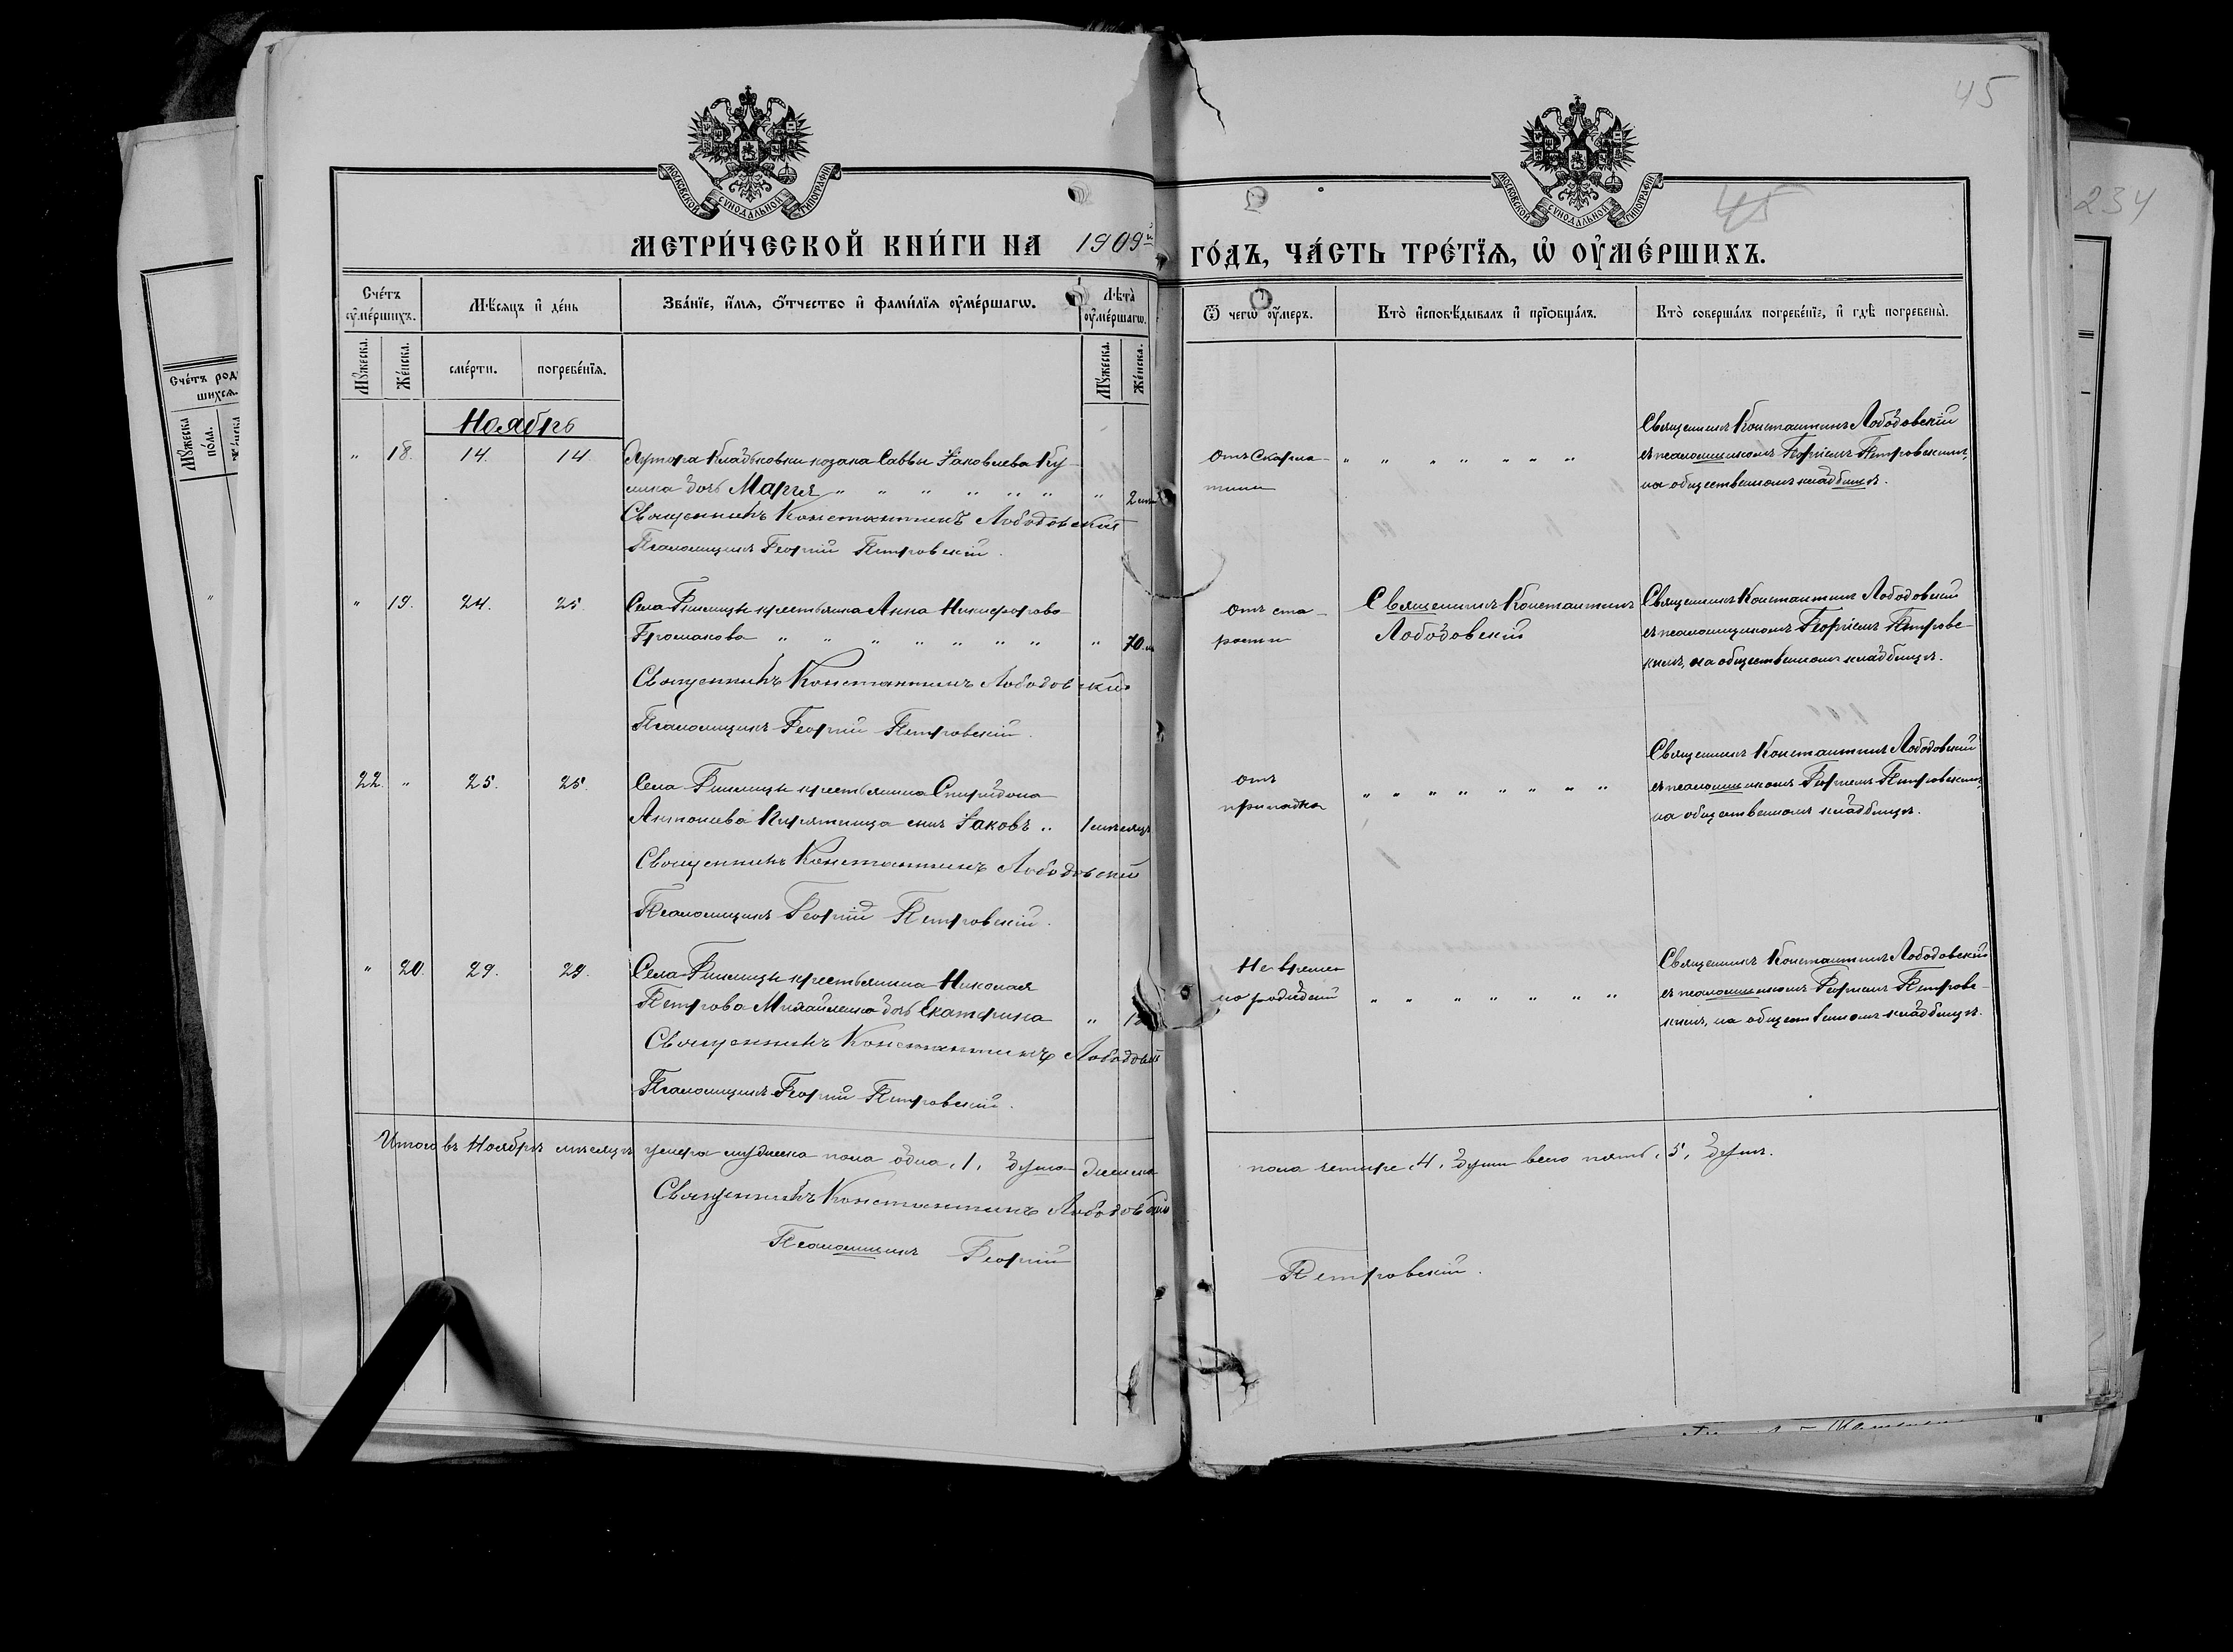 45
45
234
МОСКОВСКОЙ СѴНОДАЛЬНОЙ ТИПОГРАФІИ
МОСКОВСКОЙ СѴНОДАЛЬНОЙ ТИПОГРАФІИ
МЕТРИ́ЧЕСКОЙ КНИ́ГИ НА 1909й
ГО́ДЪ, ЧА́СТЬ ТРЕ́ТЇѦ, Ѡ҆ ОУ҆МЕ́РШИХЪ.
Сче́тъ оу҆ме́ршихъ.
Мѣ́сяцъ и҆ де́нь
Зва́нїе, и҆́мѧ, ѻ҆́тчество и҆ фами́лїѧ оу҆ме́ршагѡ.
Лѣ̀та оу҆ме́ршагѡ.
Ѿ чегѡ̀ оу҆́меръ.
Кто̀ и҆сповѣ́дывалъ и҆ прїѡбща́лъ.
Кто̀ соверша́лъ погребе́нїе, и҆ гдѣ̀ погребены̀.
Мꙋ́жеска.
Же́нска.
сме́рти.
погребе́нїѧ.
Мꙋ́жеска.
Же́нска.
Счетъ род
шихся.
Мꙋ́жеска
по́ла.
Ноябрь
" 18. 14. 14. Хутора Кладьковки козака Саввы Іаковлева Ку-
лика дочь Марія " " " " " " " 2
Священникъ Константинъ Лободовскій
Псаломщикъ Георгій Петровскій.
Отъ Скарла-
тины
" " " " " " "
Священникъ Константинъ Лободовскій
съ псаломщикомъ Георгіемъ Петровскимъ,
на общественномъ кладбищѣ.
" 19. 24. 25. Села крестьянка Анна Никифорова
Громакова " " " " " " " " 70.
Священникъ Константинъ Лободовскій
Псаломщикъ Георгій Петровскій.
отъ ста-
рости
Священникъ Константинъ
Лободовскій
Священникъ Константинъ Лободовскій
съ псаломщикомъ Георгіемъ Петровс-
кимъ, на общественномъ кладбищѣ.
22. " 25. 25. Села крестьянина Спиридона
Антоніева сынъ Іаковъ " 1 мѣсяцъ
Священникъ Константинъ Лободовскій
Псаломщикъ Георгій Петровскій.
отъ
припадка
" " " " " " " "
Священникъ Константинъ Лободовскій
съ псаломщикомъ Георгіемъ Петровскимъ,
на общественномъ кладбищѣ.
" 20. 29. 29. Села крестьянина Николая
Петрова Михайленка дочь Екатерина "
Священникъ Константинъ Лободовскій
Псаломщикъ Георгій Петровскій.
Не времен
но рожденій
" " " " " " "
Священникъ Константинъ Лободовскій
съ псаломщикомъ Георгіемъ Петровс-
кимъ, на общественномъ кладбищѣ.
Итого въ Ноябрѣ мѣсяцѣ умера мужеска пола одна, 1, душа женска
пола четыре, 4, души всего пять, 5, душъ.
Священникъ Константинъ Лободовскій
Псаломщикъ Георгій
Петровскій.